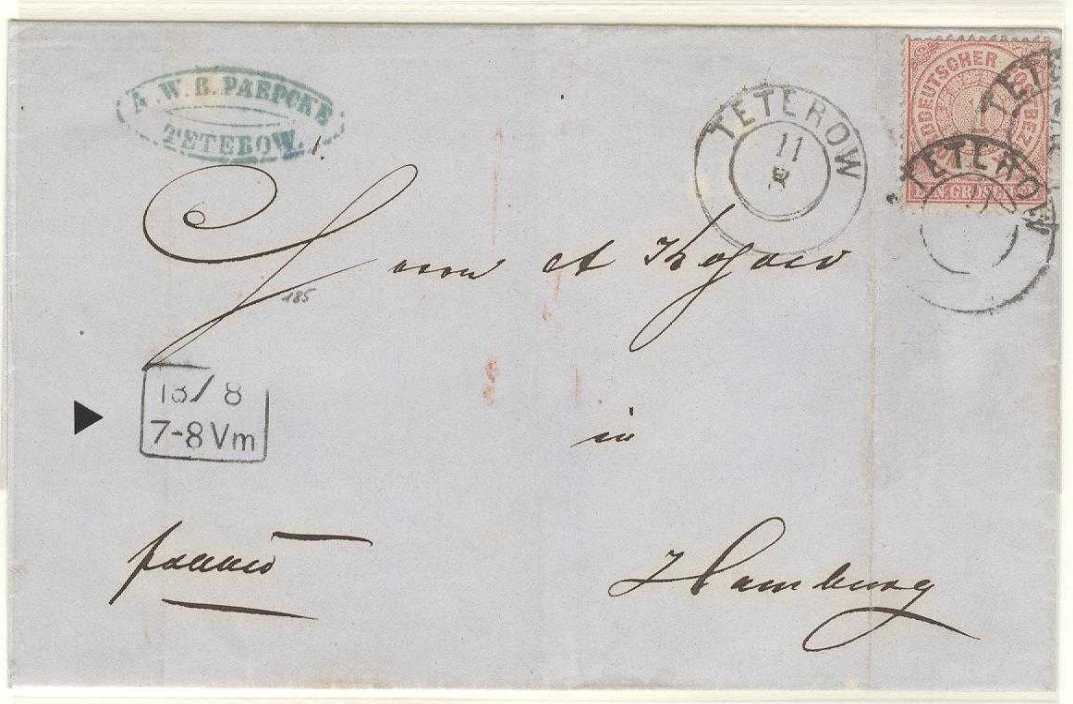 A.W.B. PAEPCKE
TETEROW.
TETEROW
11
8
NORDDEUTSCHER POSTBEZ
1
EIN GROSCHEN
TETEROW
TETEROW
185
13/8
7-8 Vm
in
franco
Hamburg